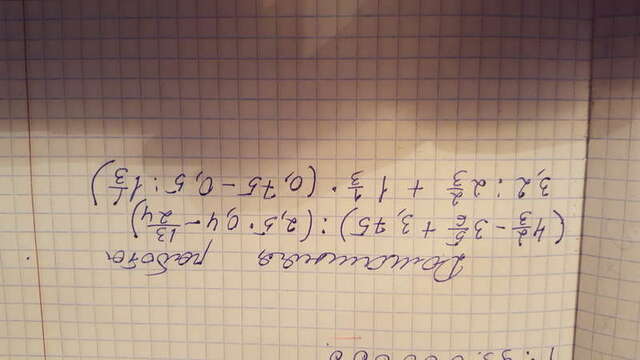 Домашняя работа
(4 2/3 - 3 5/6 + 3,75) : (2,5 · 0,4 - 13/24)
3,2 : 2 2/3 + 1 1/3 · (0,75 - 0,5 : 1 1/3)